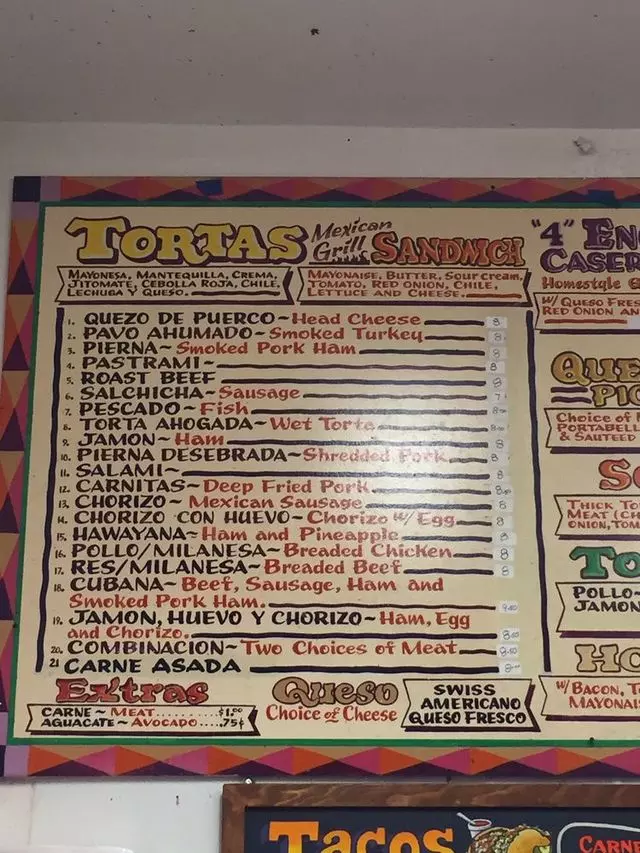 TORTAS Mexican Grill SANDWICH
MAYONESA, MANTEQUILLA, CREMA,
JITOMATE, CEBOLLA ROJA, CHILE,
LECHUGA Y QUESO.
MAYONAISE, BUTTER, SOUR CREAM,
TOMATO, RED ONION, CHILE,
LETTUCE AND CHEESE.
1. QUEZO DE PUERCO~Head Cheese 8
2. PAVO AHUMADO~Smoked Turkey 8
3. PIERNA~Smoked Pork Ham 8
4. PASTRAMI~ 8
5. ROAST BEEF 8
6. SALCHICHA~Sausage 7
7. PESCADO~Fish 8
8. TORTA AHOGADA~Wet Torta 8
9. JAMON~Ham 8
10. PIERNA DESEBRADA~Shredded Pork 8
11. SALAMI~ 8
12. CARNITAS~Deep Fried Pork 8
13. CHORIZO~Mexican Sausage 8
14. CHORIZO CON HUEVO~Chorizo w/ Egg 8
15. HAWAYANA~Ham and Pineapple 8
16. POLLO/MILANESA~Breaded Chicken 8
17. RES/MILANESA~Breaded Beef 8
18. CUBANA~Beef, Sausage, Ham and
Smoked Pork Ham.
19. JAMON, HUEVO Y CHORIZO~Ham, Egg
and Chorizo.
20. COMBINACION~Two Choices of Meat
21 CARNE ASADA
Extras
CARNE~MEAT.........$1.00
AGUACATE~AVOCADO....75¢
Queso
Choice of Cheese
SWISS
AMERICANO
QUESO FRESCO
"4" EN
CASER
Homestyle
W/ QUESO FRES
RED ONION AN
QUE
PIC
Choice of
PORTABELL
& SAUTEED
S
THICK TO
MEAT (CH
ONION, TOM
TO
POLLO~
JAMON
HO
W/ BACON, T
MAYONAIS
Tacos
CARNE